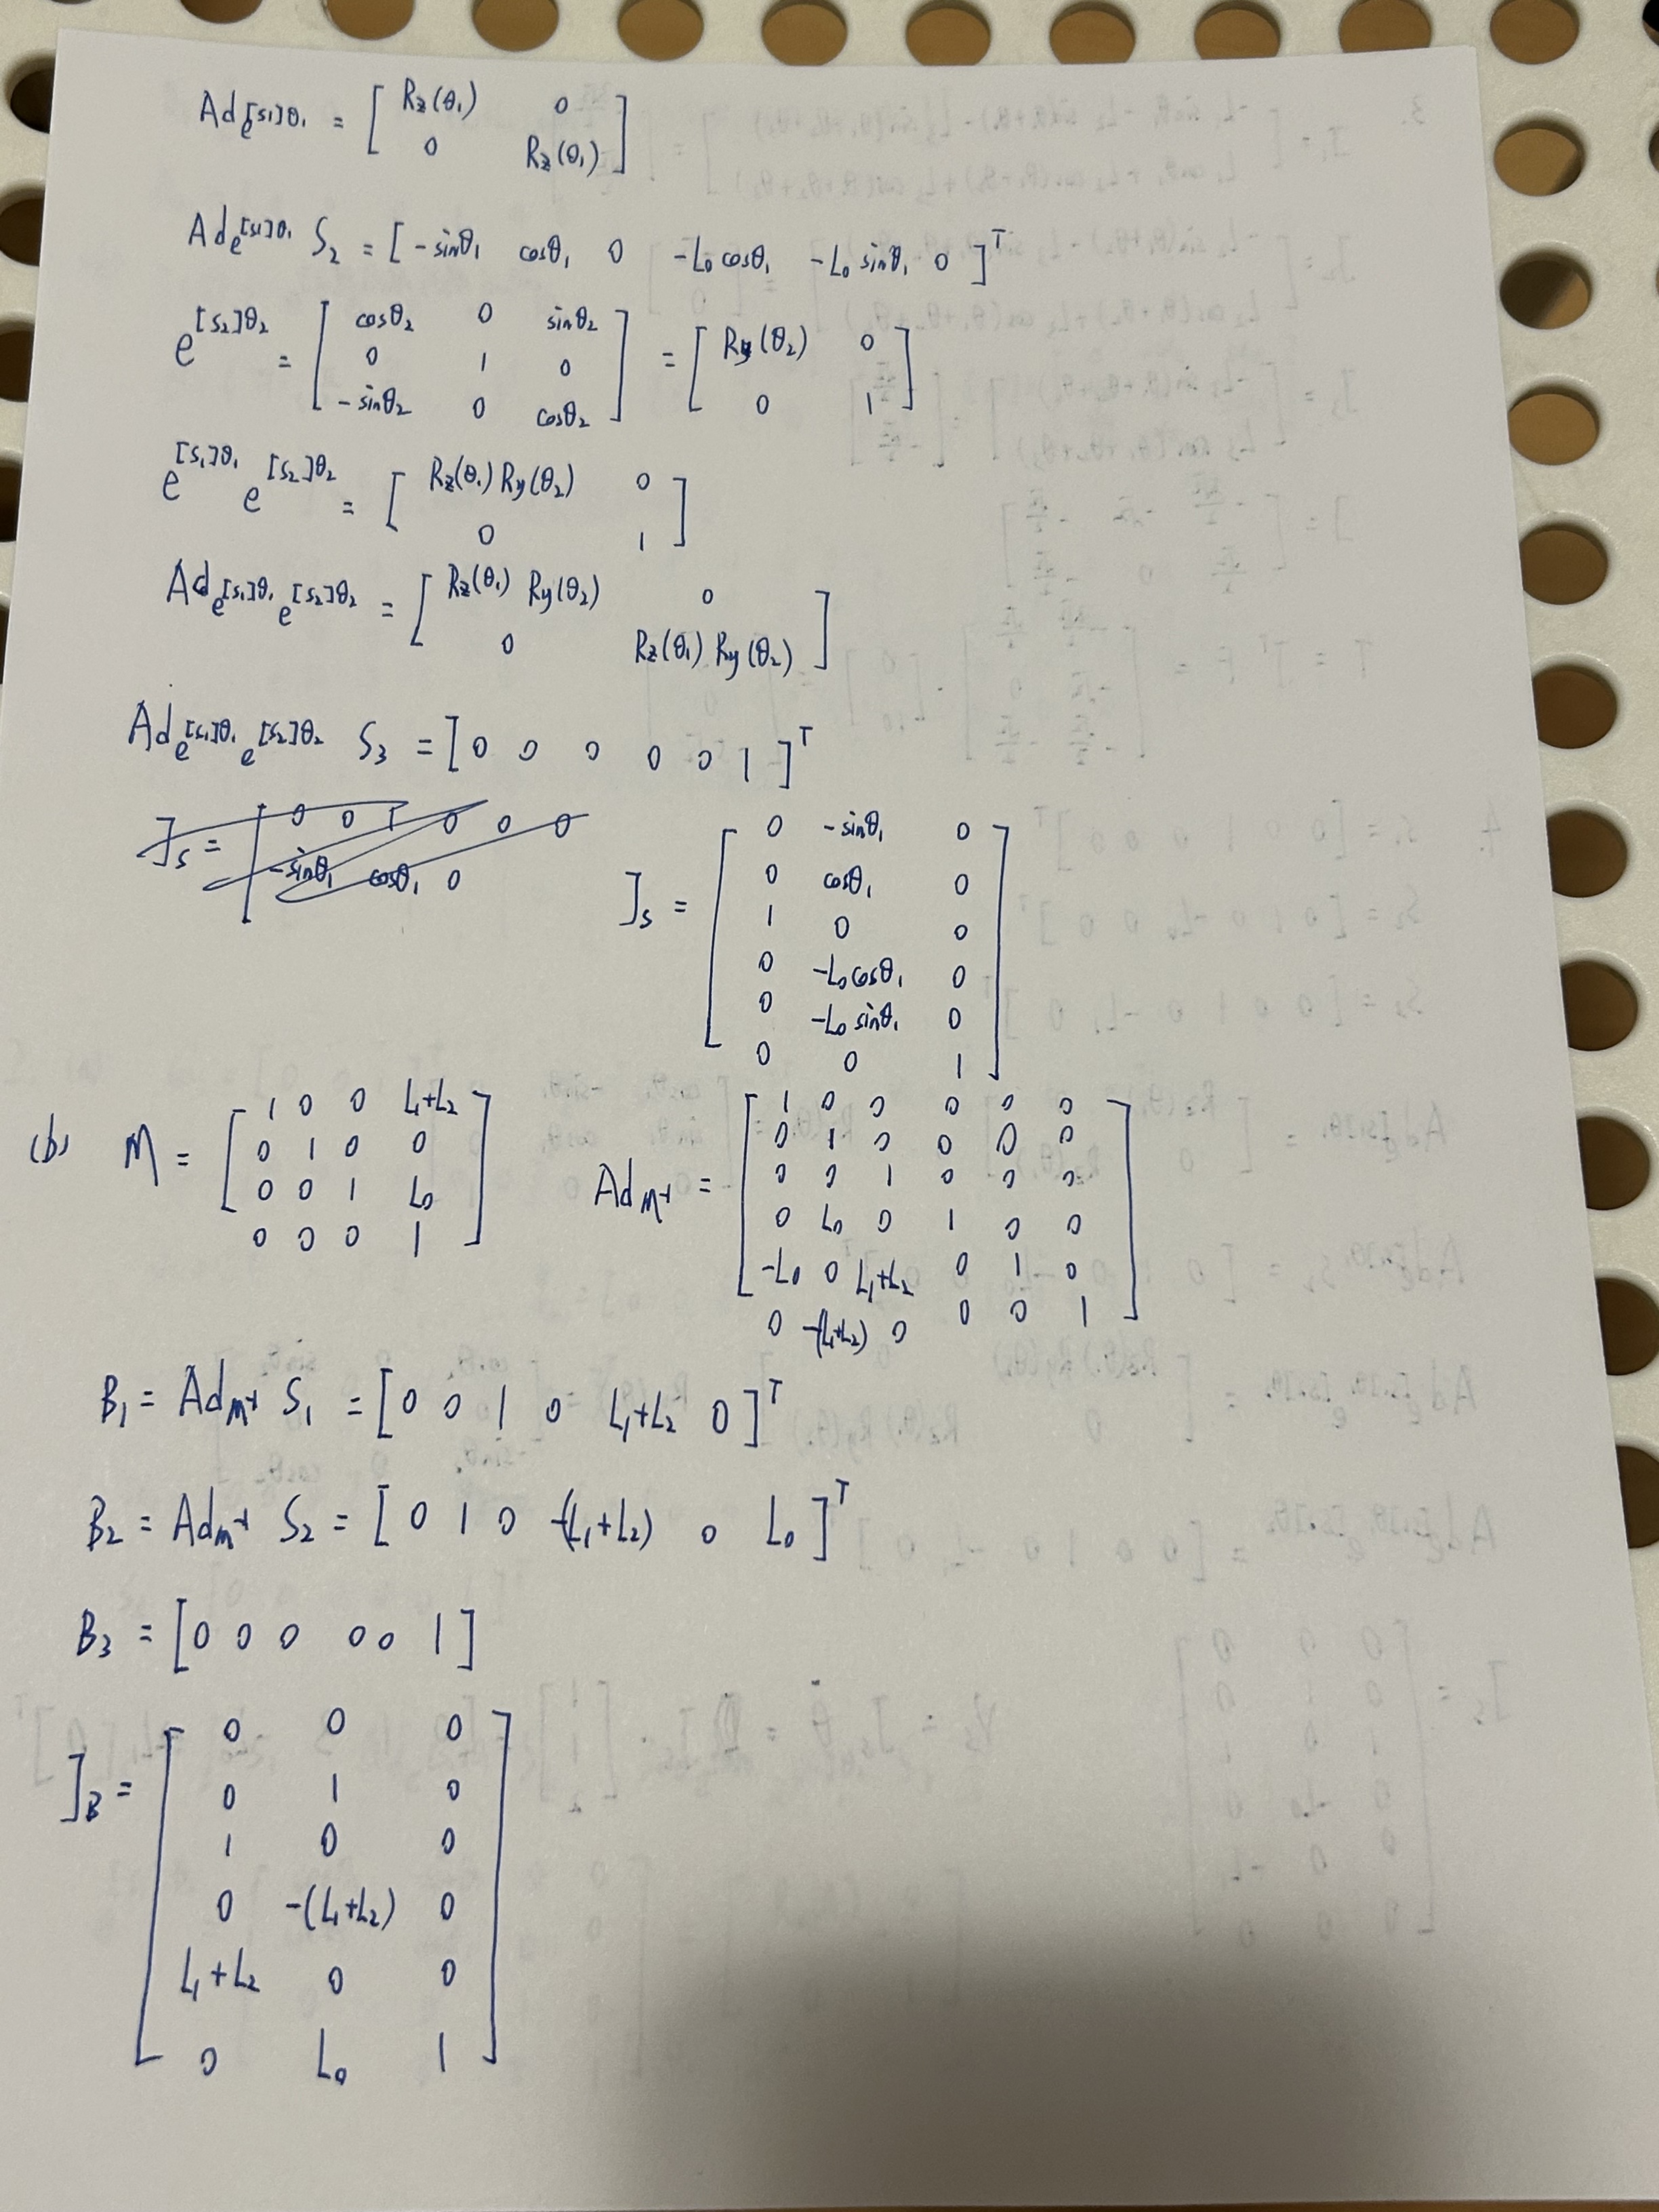 Ad e^[s1]θ1 = [ Rz(θ1) 0
0 Rz(θ1) ]
Ad e^[s1]θ1 S2 = [ -sinθ1 cosθ1 0 -L0 cosθ1 -L0 sinθ1 0 ]^T
e^[s2]θ2 = [ cosθ2 0 sinθ2
0 1 0
-sinθ2 0 cosθ2 ] = [ Ry(θ2) 0
0 1 ]
e^[s1]θ1 e^[s2]θ2 = [ Rz(θ1) Ry(θ2) 0
0 1 ]
Ad e^[s1]θ1 e^[s2]θ2 = [ Rz(θ1) Ry(θ2) 0
0 Rz(θ1) Ry(θ2) ]
Ad e^[s1]θ1 e^[s2]θ2 S3 = [ 0 0 0 0 0 1 ]^T
Js = [ 0 0 1 0 0 0
-sinθ1 cosθ1 0
Js = [ 0 -sinθ1 0
0 cosθ1 0
1 0 0
0 -L0 cosθ1 0
0 -L0 sinθ1 0
0 0 1 ]
(b) M = [ 1 0 0 L1+L2
0 1 0 0
0 0 1 L0
0 0 0 1 ]
Ad M-1 = [ 1 0 0 0 0 0
0 1 0 0 0 0
0 0 1 0 0 0
0 L0 0 1 0 0
-L0 0 L1+L2 0 1 0
0 -(L1+L2) 0 0 0 1 ]
B1 = Ad M-1 S1 = [ 0 0 1 0 L1+L2 0 ]^T
B2 = Ad M-1 S2 = [ 0 1 0 -(L1+L2) 0 L0 ]^T
B3 = [ 0 0 0 0 0 1 ]
JB = [ 0 0 0
0 1 0
1 0 0
0 -(L1+L2) 0
L1+L2 0 0
0 L0 1 ]